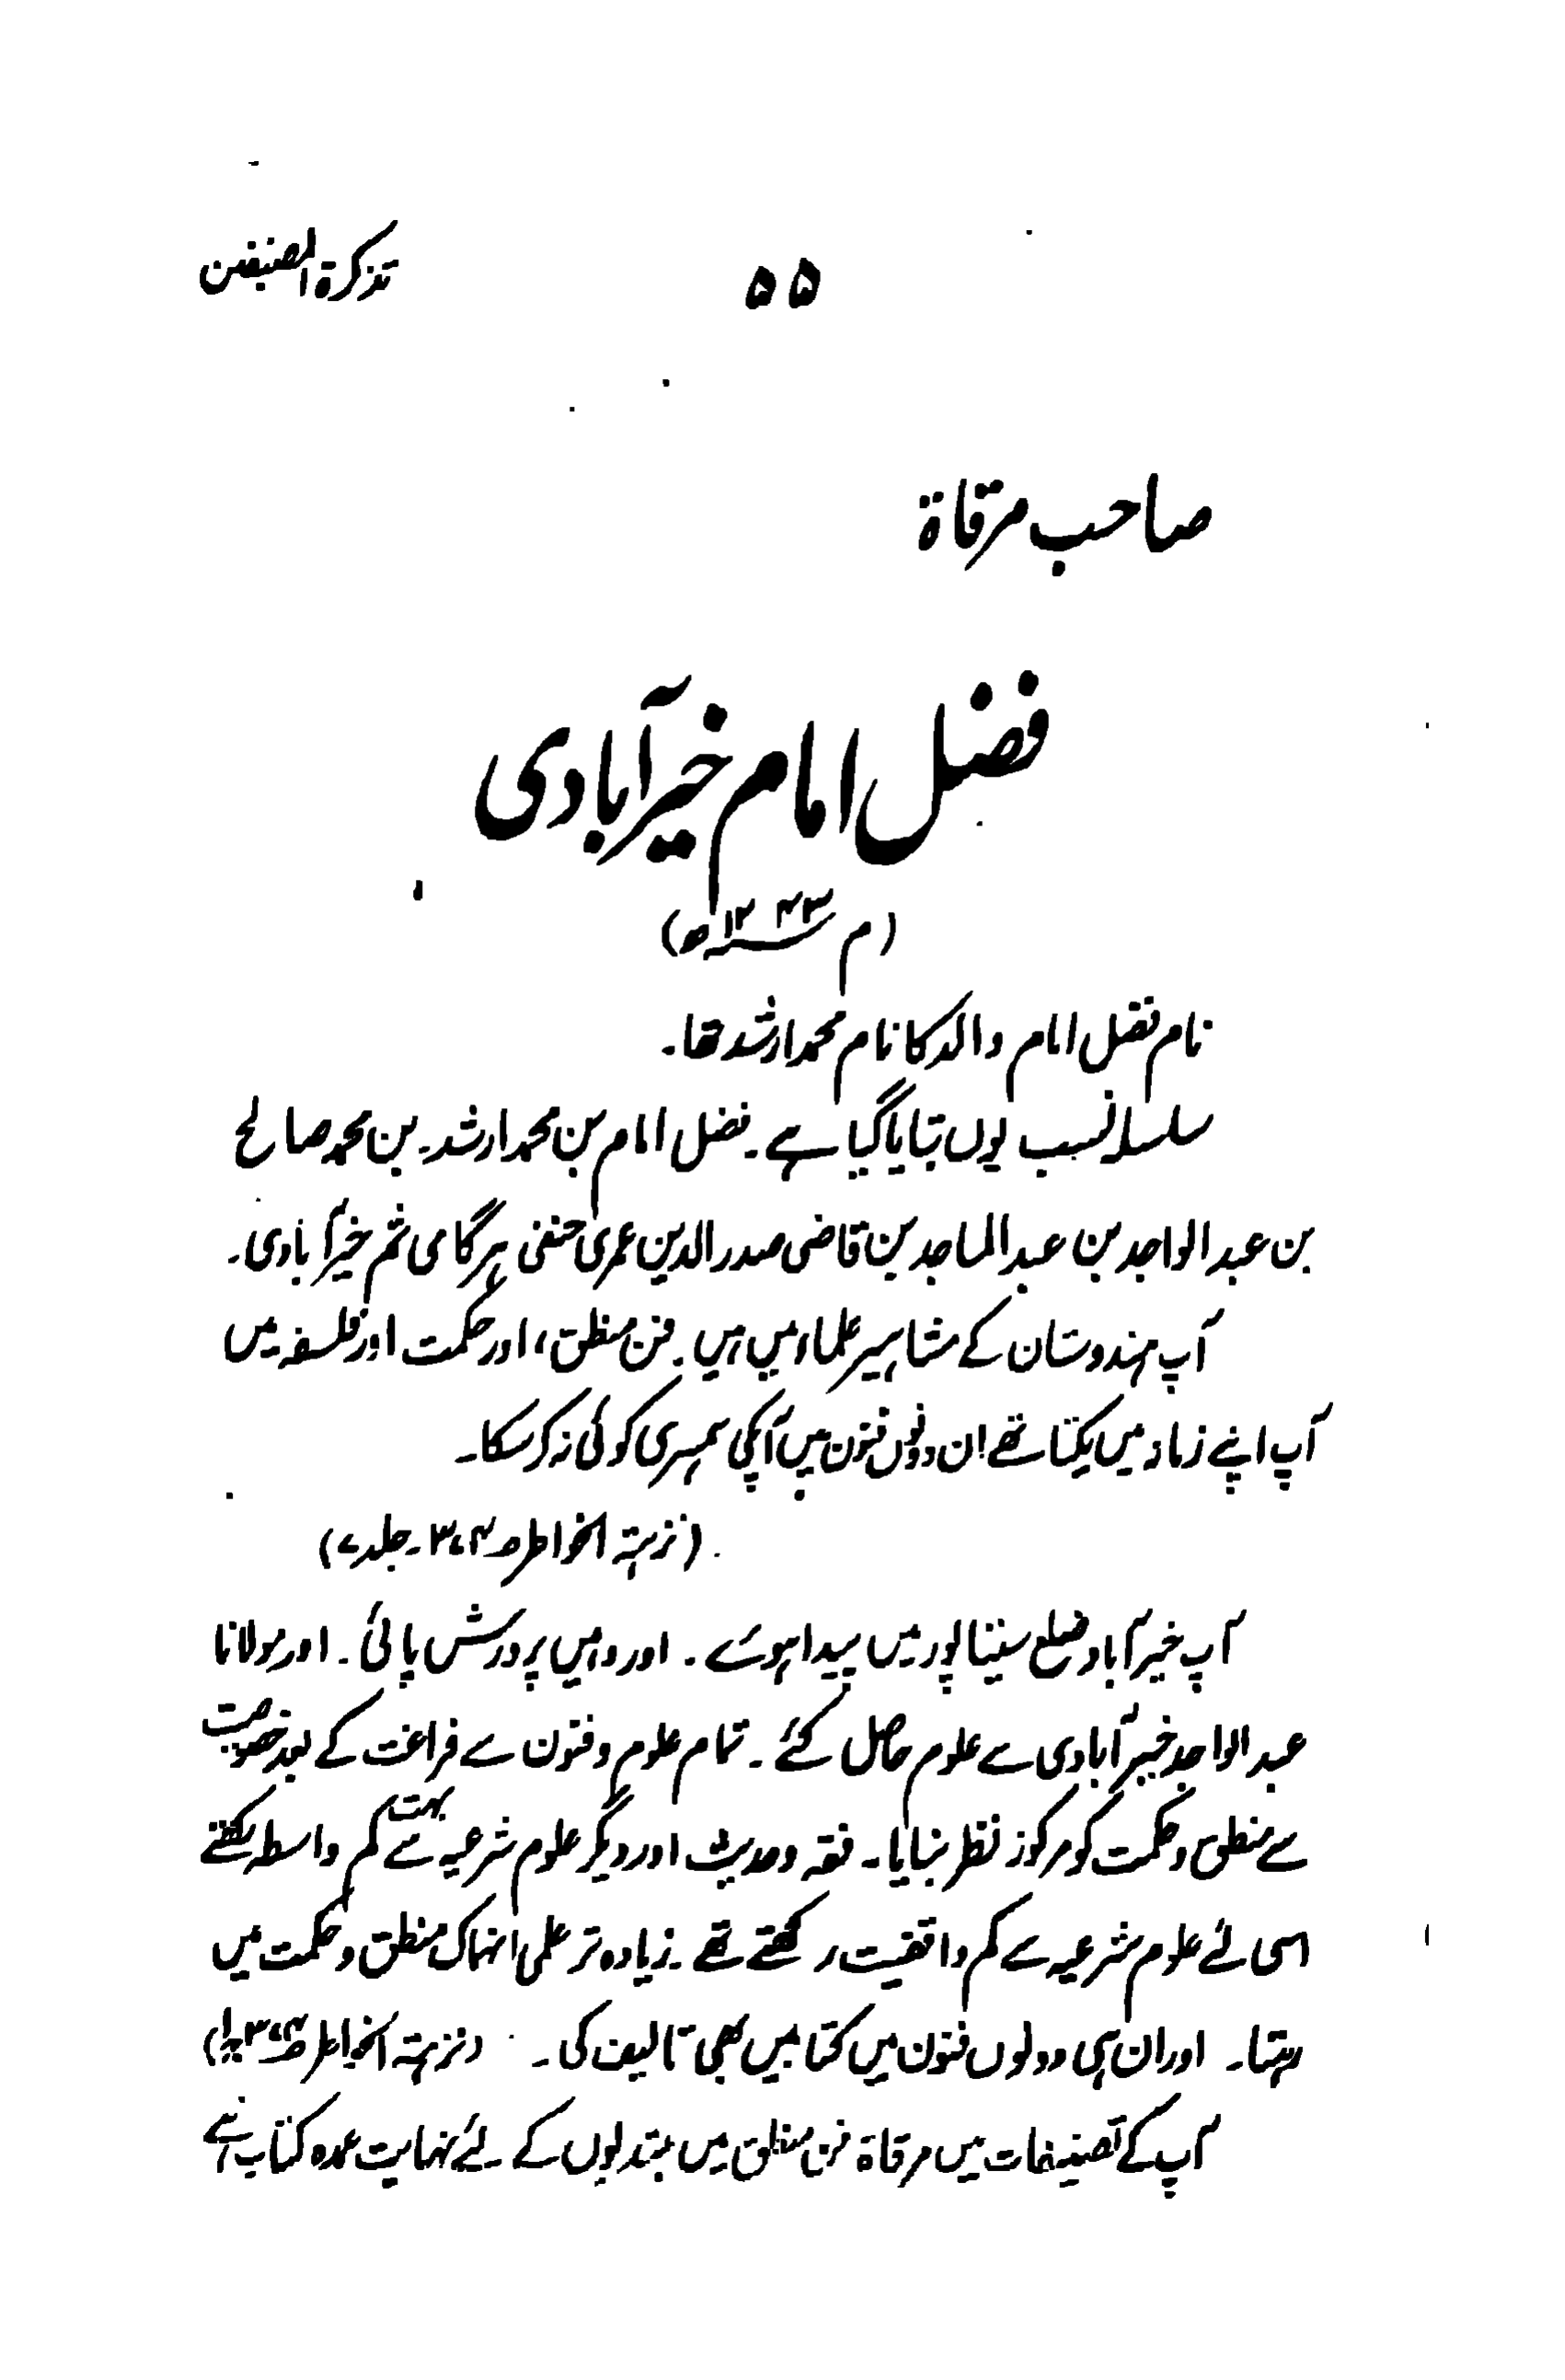 تذکرۃ المصنفین
۵۵
صاحب مرقاۃ
فضل امام خیرآبادی
(م ۱۲۴۳ھ)
نام فضل امام والد کا نام محمد ارشد تھا۔
سلسلہ نسب یوں بتایا گیا ہے۔ فضل امام بن محمد ارشد۔ بن محمد صالح
بن عبد الواجد بن عبد الماجد بن قاضی صدر الدین عمری حنفی ہرگامی ثم خیرآبادی۔
آپ ہندوستان کے مشاہیر علماء میں ہیں۔ فن منطق، اور حکمت اور فلسفہ میں
آپ اپنے زمانہ میں یکتا تھے ان دونوں فنون میں آپکی ہمسری کوئی نہ کر سکا۔
(نزہتہ الخواطر ص۳۷۴۔ جلد ۷)
آپ خیرآباد ضلع سیتاپور میں پیدا ہوئے۔ اور وہیں پرورش پائی۔ اور مولانا
عبد الواجد خیرآبادی سے علوم حاصل کئے۔ تمام علوم و فنون سے فراغت کے بعد خصوصیت
سے منطق و حکمت کو مرکوز نظر بنایا۔ فقہ و حدیث اور دیگر علوم شرعیہ سے بہت کم واسطہ رکھتے
اسی لئے علوم شرعیہ سے کم واقفیت رکھتے تھے۔ زیادہ تر علمی انہماک منطق و حکمت میں
رہتا۔ اور ان ہی دونوں فنون میں کتابیں بھی تالیف کی۔ (نزہتہ الخواطر ص۳۷۴)
آپ کے تصنیفات میں مرقاۃ فن منطق میں مبتدیوں کے لئے نہایت عمدہ کتاب ہے